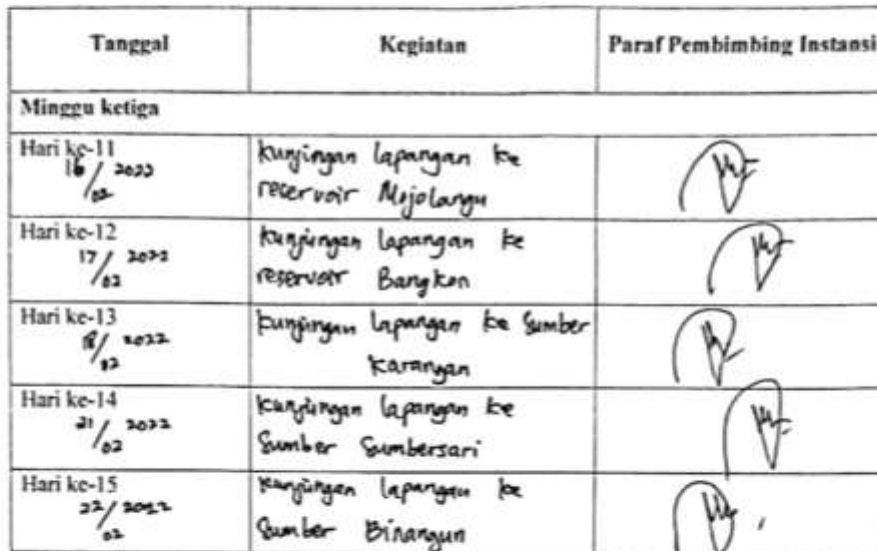 Tanggal Kegiatan Paraf Pembimbing Instansi
Minggu ketiga
Hari ke-11
16/02 2022
kunjungan lapangan ke
reservoir Mojolangu
Hari ke-12
17/02 2022
kunjungan lapangan ke
reservoir Bangkon
Hari ke-13
18/02 2022
kunjungan lapangan ke Sumber
Karangan
Hari ke-14
21/02 2022
kunjungan lapangan ke
Sumber Sumbersari
Hari ke-15
22/02 2022
kunjungan lapangan ke
Sumber Binangun